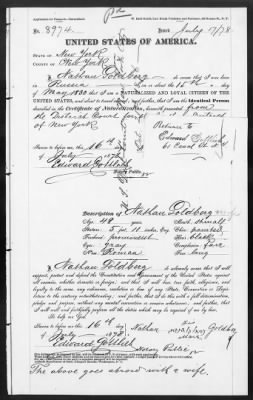 No. 8974.
Issued July 17/78
UNITED STATES OF AMERICA.
STATE OF New York
COUNTY OF New York
I Nathan Goldberg do swear that I was born
in Russia on or about the 15th day
of May 1830 that I am a NATURALIZED AND LOYAL CITIZEN OF THE
UNITED STATES, and about to travel abroad; and further, that I am the Identical Person
described in the Certificate of Naturalization, herewith presented from
the District Court
of New York
Return to
Edward Gottlieb
61 Canal St
Sworn to before me, this 16th
day of July 1878
Edward Gottlieb
Notary Public
Description of Nathan Goldberg
Age: 48
Stature: 5 ft. 10 inches Eng.
Forehead: prominent
Eyes: gray
Nose: Roman
Mouth: small
Chin: round
Hair: black
Complexion: fair
Face: long
I Nathan Goldberg do solemnly swear that I will
support, protect and defend the Constitution and Government of the United States against
all enemies, whether domestic or foreign; and that I will bear true faith, allegiance, and
loyalty to the same, any ordinance, resolution or law of any State, Convention or Legis-
lature to the contrary notwithstanding; and further, that I do this with a full determination,
pledge and purpose, without any mental reservation or evasion whatsoever; and further, that
I will well and faithfully perform all the duties which may be required of me by law.
So help me God.
Sworn to before me, this 16th
day of July 1878
Nathan Goldberg
his mark
Edward Gottlieb
Notary Public
The above goes abroad with a wife.